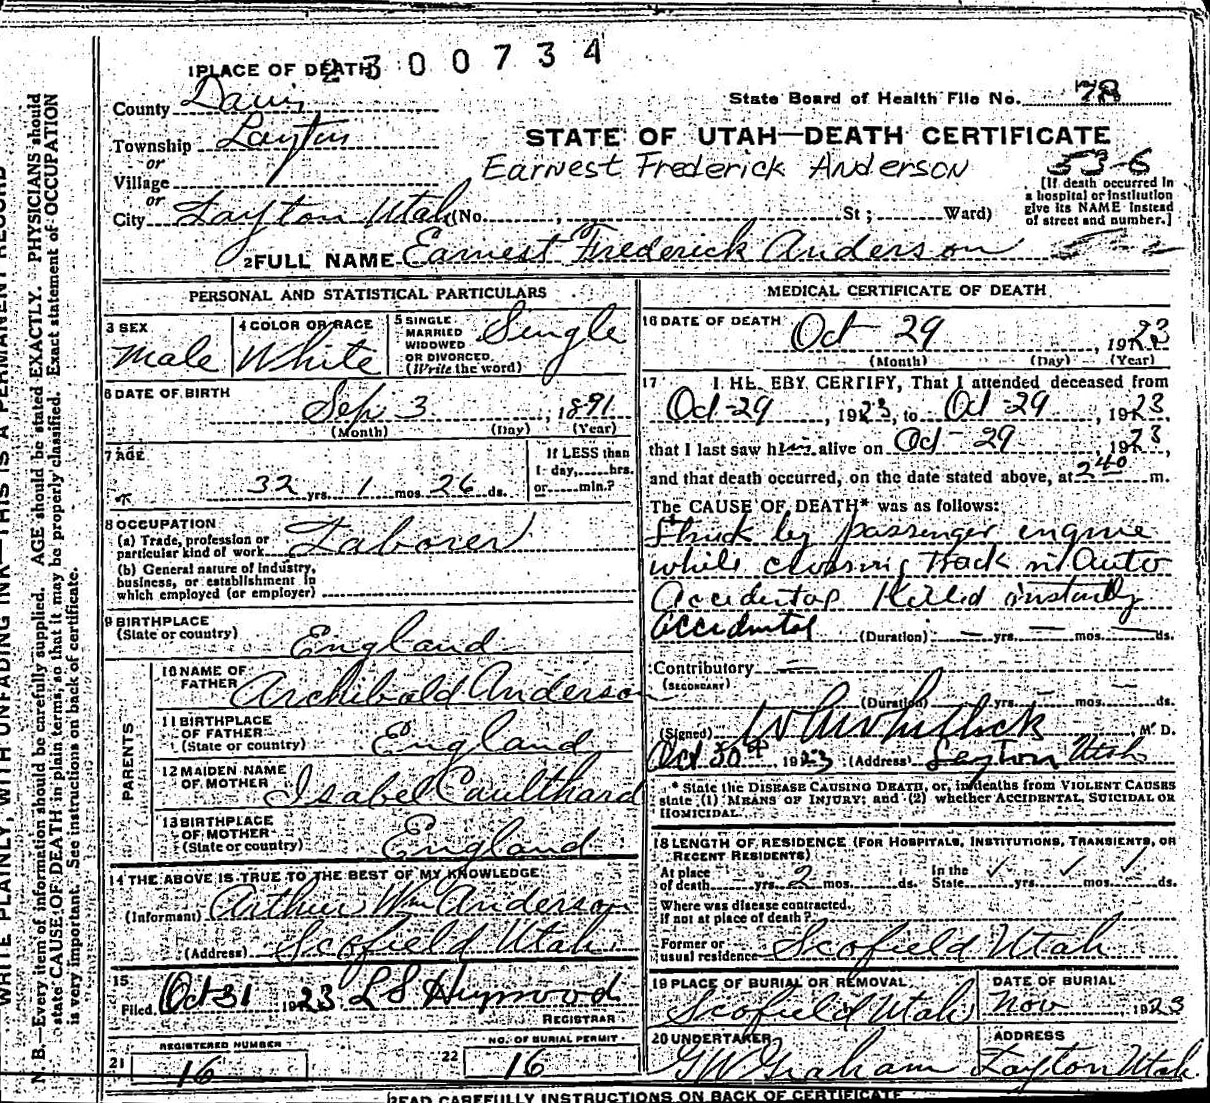 2300734
1 PLACE OF DEATH
County Davis
State Board of Health File No. 78
Township Layton
STATE OF UTAH—DEATH CERTIFICATE
or
Village
Earnest Frederick Anderson
53-6
or
City Layton Utah (No. , St ; Ward)
[If death occurred in
a hospital or institution
give its NAME instead
of street and number.]
2 FULL NAME Earnest Frederick Anderson
PERSONAL AND STATISTICAL PARTICULARS
3 SEX
Male
4 COLOR OR RACE
White
5 SINGLE
MARRIED
WIDOWED
OR DIVORCED
(Write the word)
Single
6 DATE OF BIRTH
Sep 3, 1891
(Month) (Day) (Year)
7 AGE
32 yrs. 1 mos. 26 ds.
If LESS than
1 day, hrs.
or min.?
8 OCCUPATION
(a) Trade, profession or
particular kind of work Laborer
(b) General nature of industry,
business, or establishment in
which employed (or employer)
9 BIRTHPLACE
(State or country) England
PARENTS
10 NAME OF
FATHER Archibald Anderson
11 BIRTHPLACE
OF FATHER
(State or country) England
12 MAIDEN NAME
OF MOTHER Isabel Caulthard
13 BIRTHPLACE
OF MOTHER
(State or country) England
14 THE ABOVE IS TRUE TO THE BEST OF MY KNOWLEDGE
(Informant) Arthur Wm Anderson
(Address) Scofield Utah
15
Filed Oct 31 1923 L S Heywood
REGISTRAR
REGISTERED NUMBER
21 16
NO. OF BURIAL PERMIT
22 16
MEDICAL CERTIFICATE OF DEATH
16 DATE OF DEATH Oct 29, 1923
(Month) (Day) (Year)
17 I HEREBY CERTIFY, That I attended deceased from
Oct-29, 1923, to Oct-29, 1923,
that I last saw him alive on Oct-29, 1923,
and that death occurred, on the date stated above, at 2 40 m.
The CAUSE OF DEATH* was as follows:
Struck by passenger engine
while crossing track in Auto
Accidental Killed instantly
Accidental (Duration) — yrs. — mos. — ds.
Contributory —
(SECONDARY)
(Duration) yrs. — mos. — ds.
(Signed) Whitlock, M. D.
Oct 30th, 1923 (Address) Layton Utah
* State the DISEASE CAUSING DEATH, or, in deaths from VIOLENT CAUSES
state (1) MEANS OF INJURY; and (2) whether ACCIDENTAL, SUICIDAL OR
HOMICIDAL.
18 LENGTH OF RESIDENCE (FOR HOSPITALS, INSTITUTIONS, TRANSIENTS, OR
RECENT RESIDENTS)
At place
of death yrs. 2 mos. ds.
In the
State yrs. mos. ds.
Where was disease contracted,
if not at place of death?
Former or
usual residence Scofield Utah
19 PLACE OF BURIAL OR REMOVAL
Scofield Utah
DATE OF BURIAL
Nov 1923
20 UNDERTAKER
G W Graham
ADDRESS
Layton Utah
READ CAREFULLY INSTRUCTIONS ON BACK OF CERTIFICATE
WRITE PLAINLY, WITH UNFADING INK—THIS IS A PERMANENT RECORD
N. B.—Every item of information should be carefully supplied. AGE should be stated EXACTLY. PHYSICIANS should
state CAUSE OF DEATH in plain terms, so that it may be properly classified. Exact statement of OCCUPATION
is very important. See instructions on back of certificate.